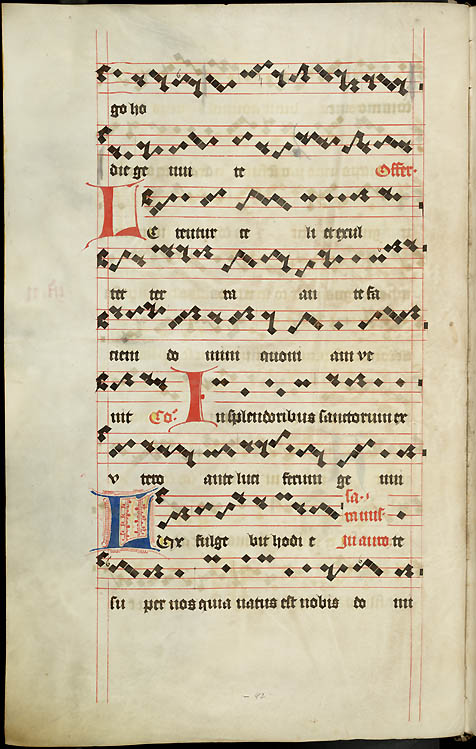 go ho
die ge nui te Offer.
Letentur ce li et exul
tet ter ra an te fa
ciem do mini quoni am ve
nit Co. In splendoribus sanctorum ex
v tero ante luci ferum ge nui
Lux fulge bit hodi e In auro te
su per nos quia natus est nobis do mi
- 92